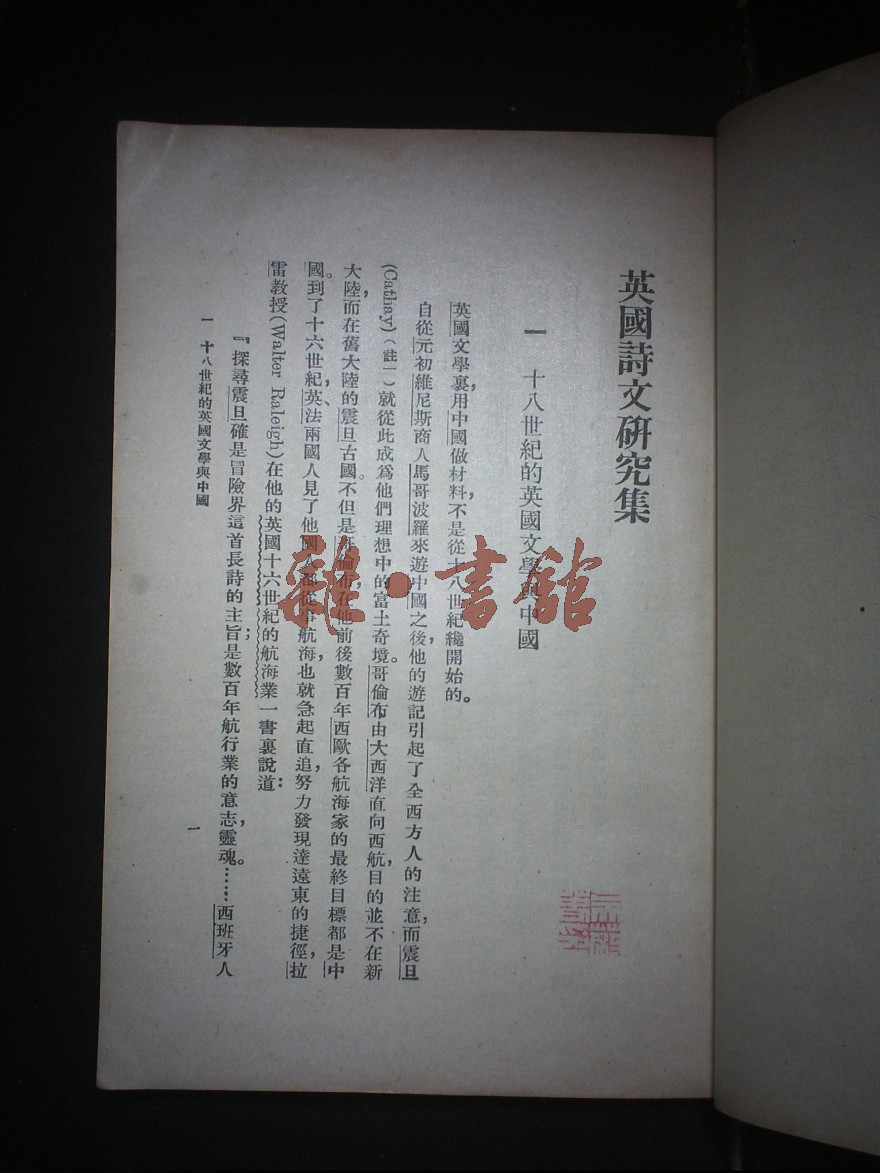 英國詩文研究集
一 十八世紀的英國文學與中國
英國文學裏,用中國做材料,不是從十八世紀纔開始的。
自從元初維尼斯商人馬哥波羅來遊中國之後,他的遊記引起了全西方人的注意,而震旦
(Cathay)(註一)就從此成爲他們理想中的富土奇境。哥倫布由大西洋直向西航,目的並不在新
大陸,而在舊大陸的震旦古國。不但是哥倫布,在他前後數百年西歐各航海家的最終目標都是中
國。到了十六世紀,英、法兩國人見了他國人都從事航海,也就急起直追,努力發現達遠東的捷徑,拉
雷教授(Walter Raleigh)在他的英國十六世紀的航海業一書裏說道:
『探尋震旦確是冒險界這首長詩的主旨;是數百年航行業的意志,靈魂。……西班牙人
一 十八世紀的英國文學與中國
一
雜·書館